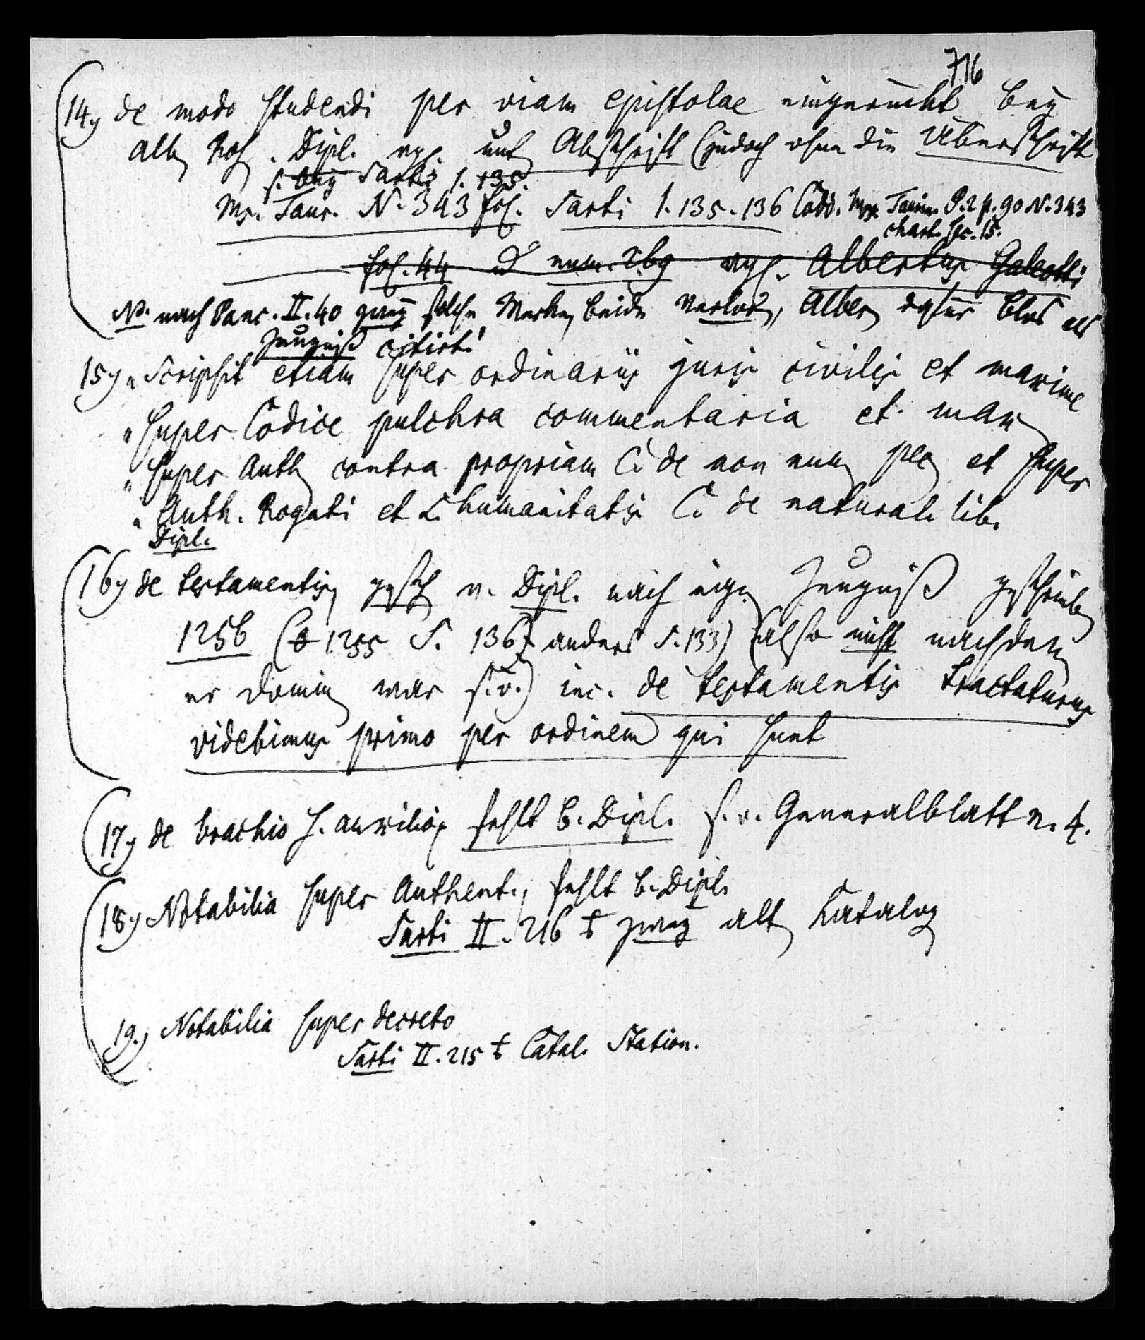 716
14, de modo studendi per viam epistolae eingerückt bey
alb. Rof. Dipl. vgl. und Abschrift (jedoch ohne die Überschrift
s. auch Sarti 1. 135.
Ms. Taur. N. 343 fol. Sarti 1. 135. 136 Codd. Mss. Taurin. P. 2 p. 90 N. 343
chart. sec. 15.
fol. 44 vgl. Albertus Galeotti
NB. nach Panc. II. 40 ganz solche Werke beide verlor, Alber blos als
Zeugniß citirt!
15, „Scripsit etiam super ordinariis juris civilis et maxime
„super Codice pulchra commentaria et. max
„super Auth contra propriam C. de non num pec et super
„Auth. Rogati et L humanitatis C. de naturali lib.
Dipl.
16, de testamentis, v. Dipl. nach Zeugniß geschrieben
1256 (1255 S. 136, anders S. 133) (also nicht nachdem
er war s. o.) inc. de testamentis tractaturus
videbimus primo per ordinem qui sunt
17, de brachio s. auxilio, fehlt b. Dipl. s. o. Generalblatt n. 4.
18, Notabilia super Authent., fehlt b. Dipl.
Sarti II. 216 alt Catalog
19, Notabilia super decreto
Sarti II. 215 Catal. Station.